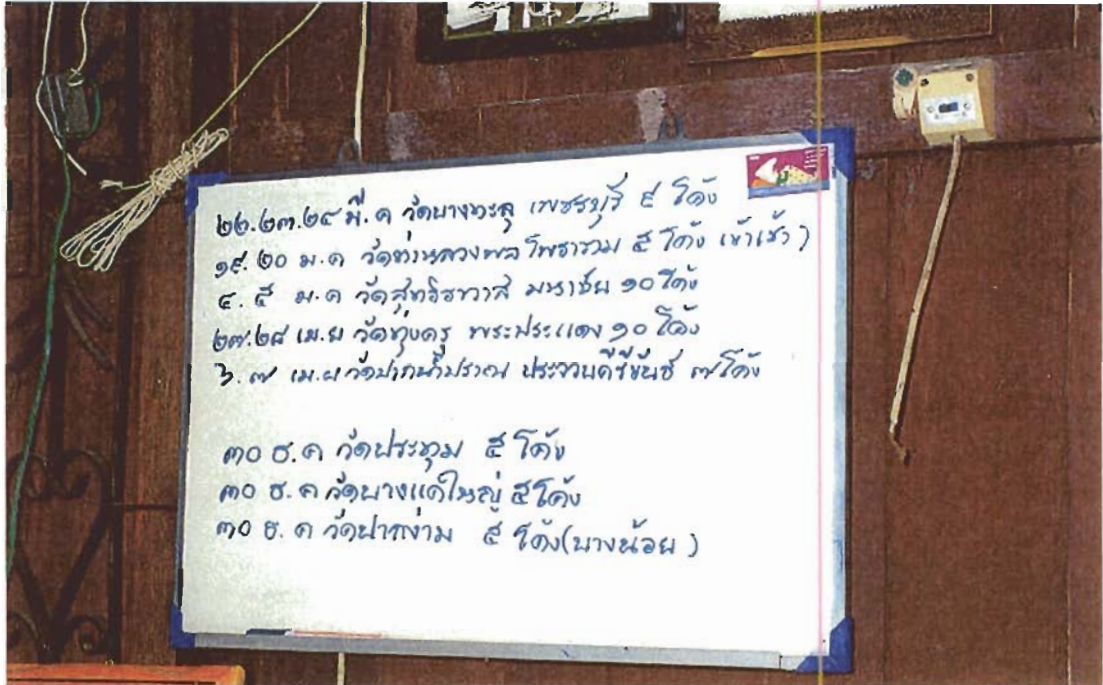 ๒๒.๒๓.๒๔ มี.ค วัดบางทะลุ เพชรบุรี ๙ โค้ง
๑๙.๒๐ ม.ค วัดท่านหลวงพล โพธาราม ๕ โค้ง เช้าเช้า)
๔. ๕ ม.ค วัดสุทธิวาส มหาชัย ๑๐ โค้ง
๒๗.๒๘ เม.ย วัดทุ่งครุ พระประแดง ๑๐ โค้ง
๖. ๗ เม.ย วัดปากน้ำปราณ ประจวบคีรีขันธ์ ๗ โค้ง
๓๐ ธ.ค วัดประทุม ๕ โค้ง
๓๐ ธ.ค วัดบางแคใหญ่ ๕ โค้ง
๓๐ ธ.ค วัดปากง่าม ๕ โค้ง(บางน้อย)